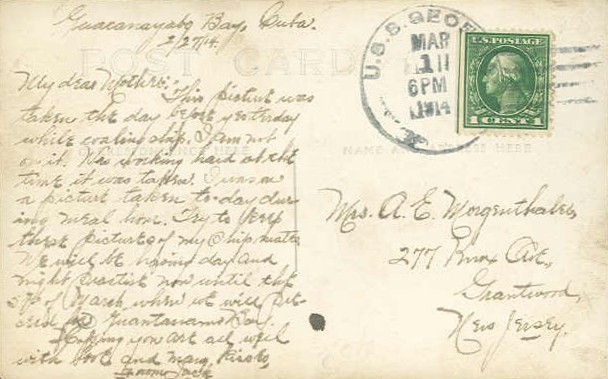 Guacanayabo Bay, Cuba.
2/27/14.
POST CARD
My dear Mother:-
This picture was
taken the day before yesterday
while coaling ship. I am not
on it. Was working hard at the
time it was taken. I was on
a picture taken to-day dur-
ing meal hour. Try to keep
these pictures of my ship mates
We will be having day and
night practice now until the
5th of March when we will
Guantanamo Bay.
Hoping you are all well
with love and many kisses,
from Jack
CORRESPONDENCE HERE
NAME AND ADDRESS HERE
U.S.S. GEOR
MAR
1
6PM
1914
U.S. POSTAGE
1 CENT 1
Mrs. A. E. Morgenthaler,
277 Knox Ave,
Grantwood,
New Jersey.